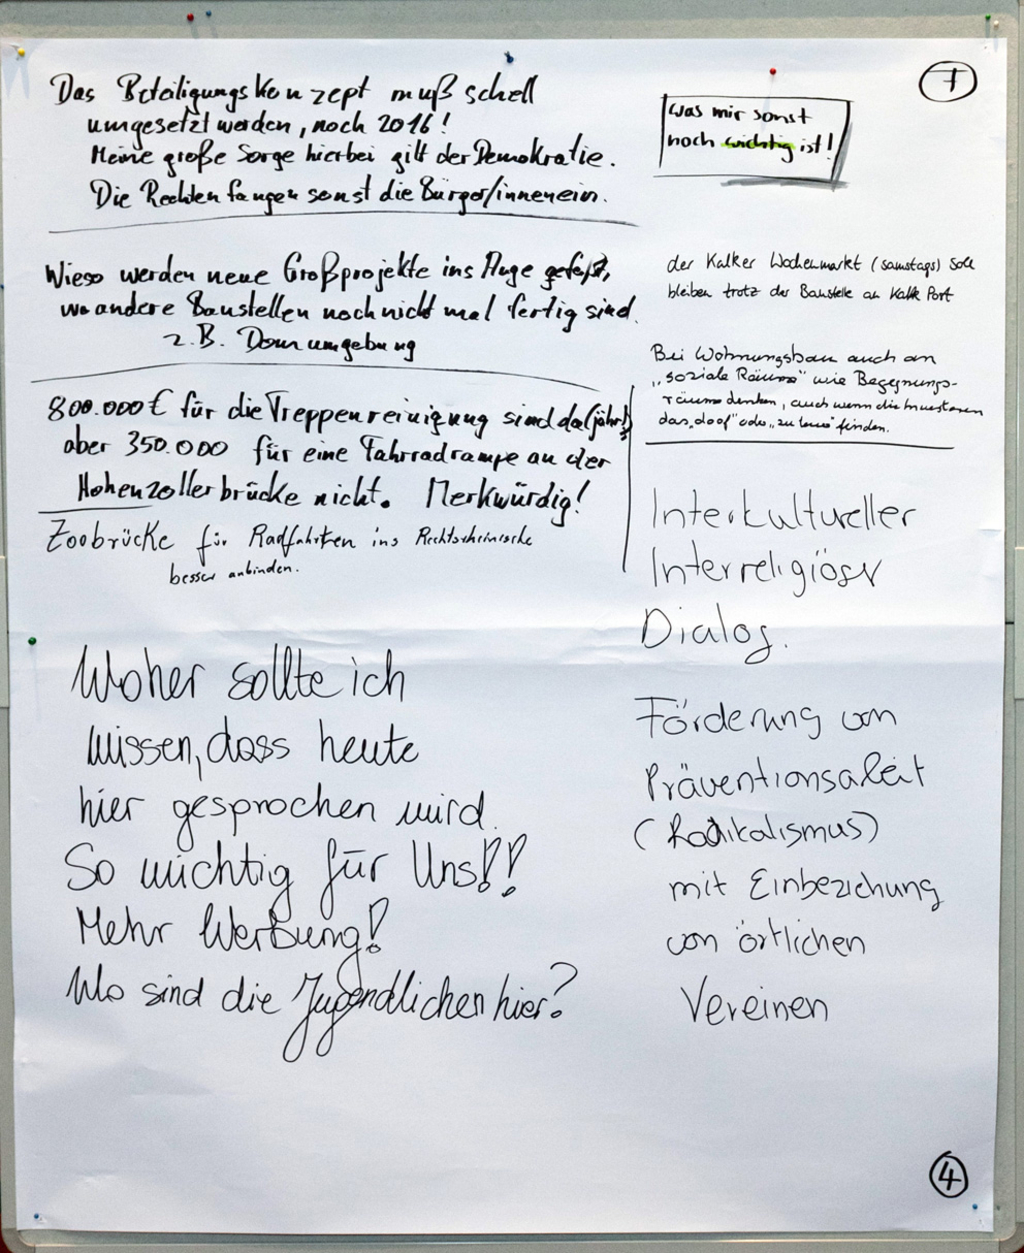 7
Was mir sonst
noch wichtig ist!
Das Beteiligungskonzept muß schell
umgesetzt werden, noch 2016!
Meine große Sorge hierbei gilt der Demokratie.
Die Rechten fangen sonst die Bürger/innen ein.
Wieso werden neue Großprojekte ins Auge gefaßt,
wo andere Baustellen noch nicht mal fertig sind.
z.B. Domumgebung
800.000 € für die Treppenreinigung sind da (jährl.),
aber 350.000 für eine Fahrradrampe an der
Hohenzollerbrücke nicht. Merkwürdig!
Zoobrücke für Radfahrten ins Rechtsrheinische
besser anbinden.
Woher sollte ich
wissen, dass heute
hier gesprochen wird.
So wichtig für Uns!!
Mehr Werbung!
Wo sind die Jugendlichen hier?
der Kalker Wochenmarkt (samstags) soll
bleiben trotz der Baustelle an Kalk Post
Bei Wohnungsbau auch an
„soziale Räume" wie Begegnungs-
räume denken, auch wenn die Investoren
das „doof" oder „zu teuer" finden.
Interkultureller
Interreligiöser
Dialog.
Förderung von
Präventionsarbeit
(Radikalismus)
mit Einbeziehung
von örtlichen
Vereinen
4